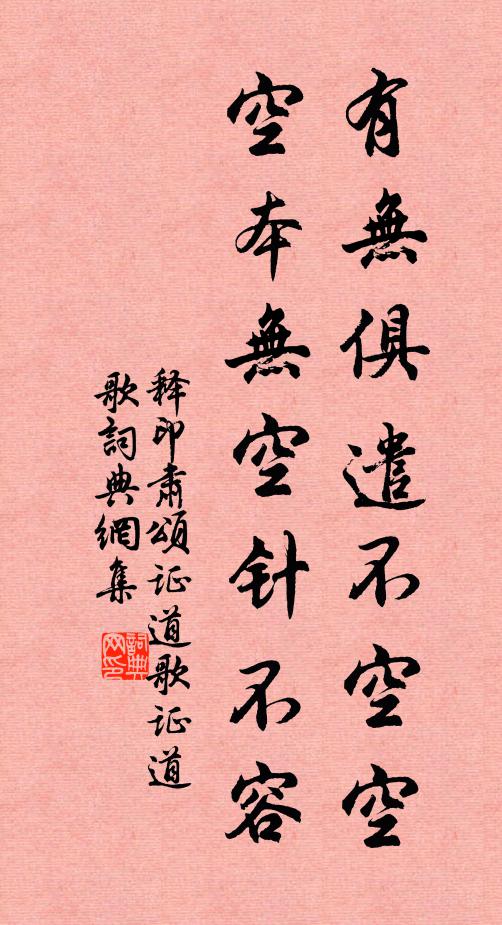 有無俱遣不空空
空本無空针不容
释印肅頌证道歌证道
歌詞典網集
詞典
网印